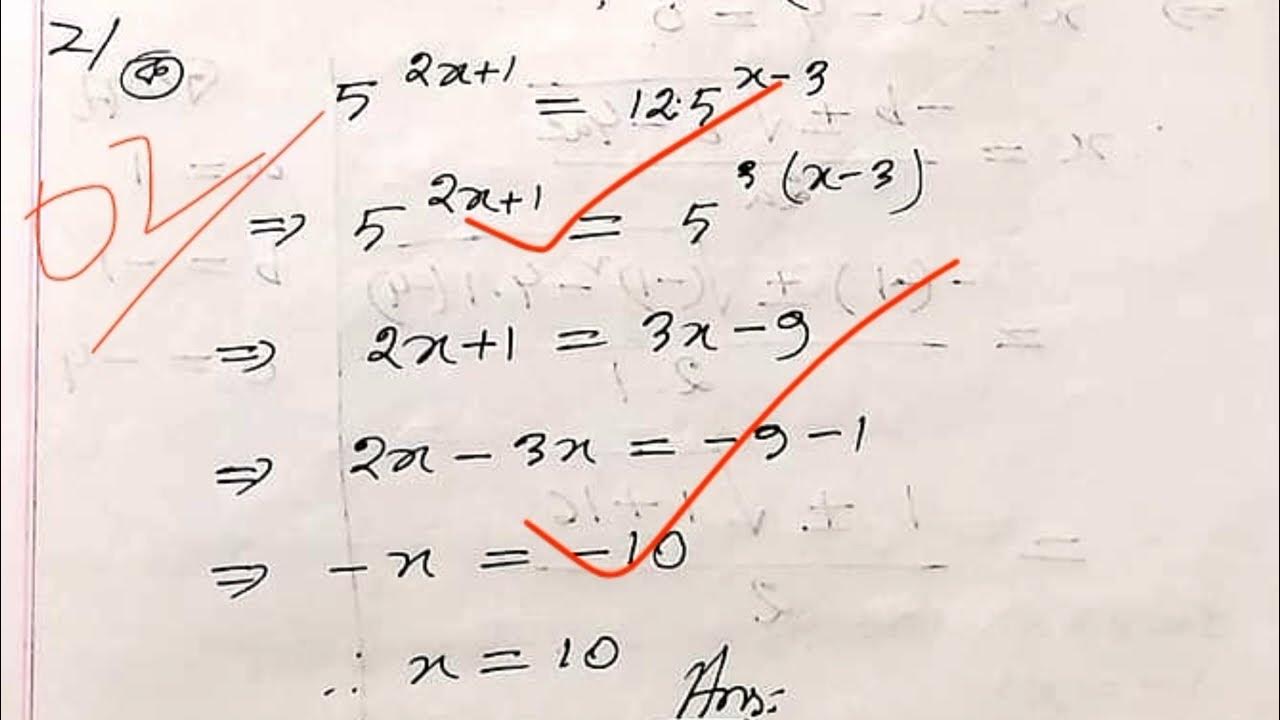 2/ ক
5^{2x+1} = 12.5^{x-3}
⇒ 5^{2x+1} = 5^{3(x-3)}
⇒ 2x+1 = 3x-9
⇒ 2x-3x = -9-1
⇒ -x = -10
∴ x = 10 Ans: